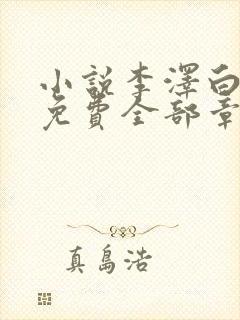 小說李澤白
免費全部章
真島浩